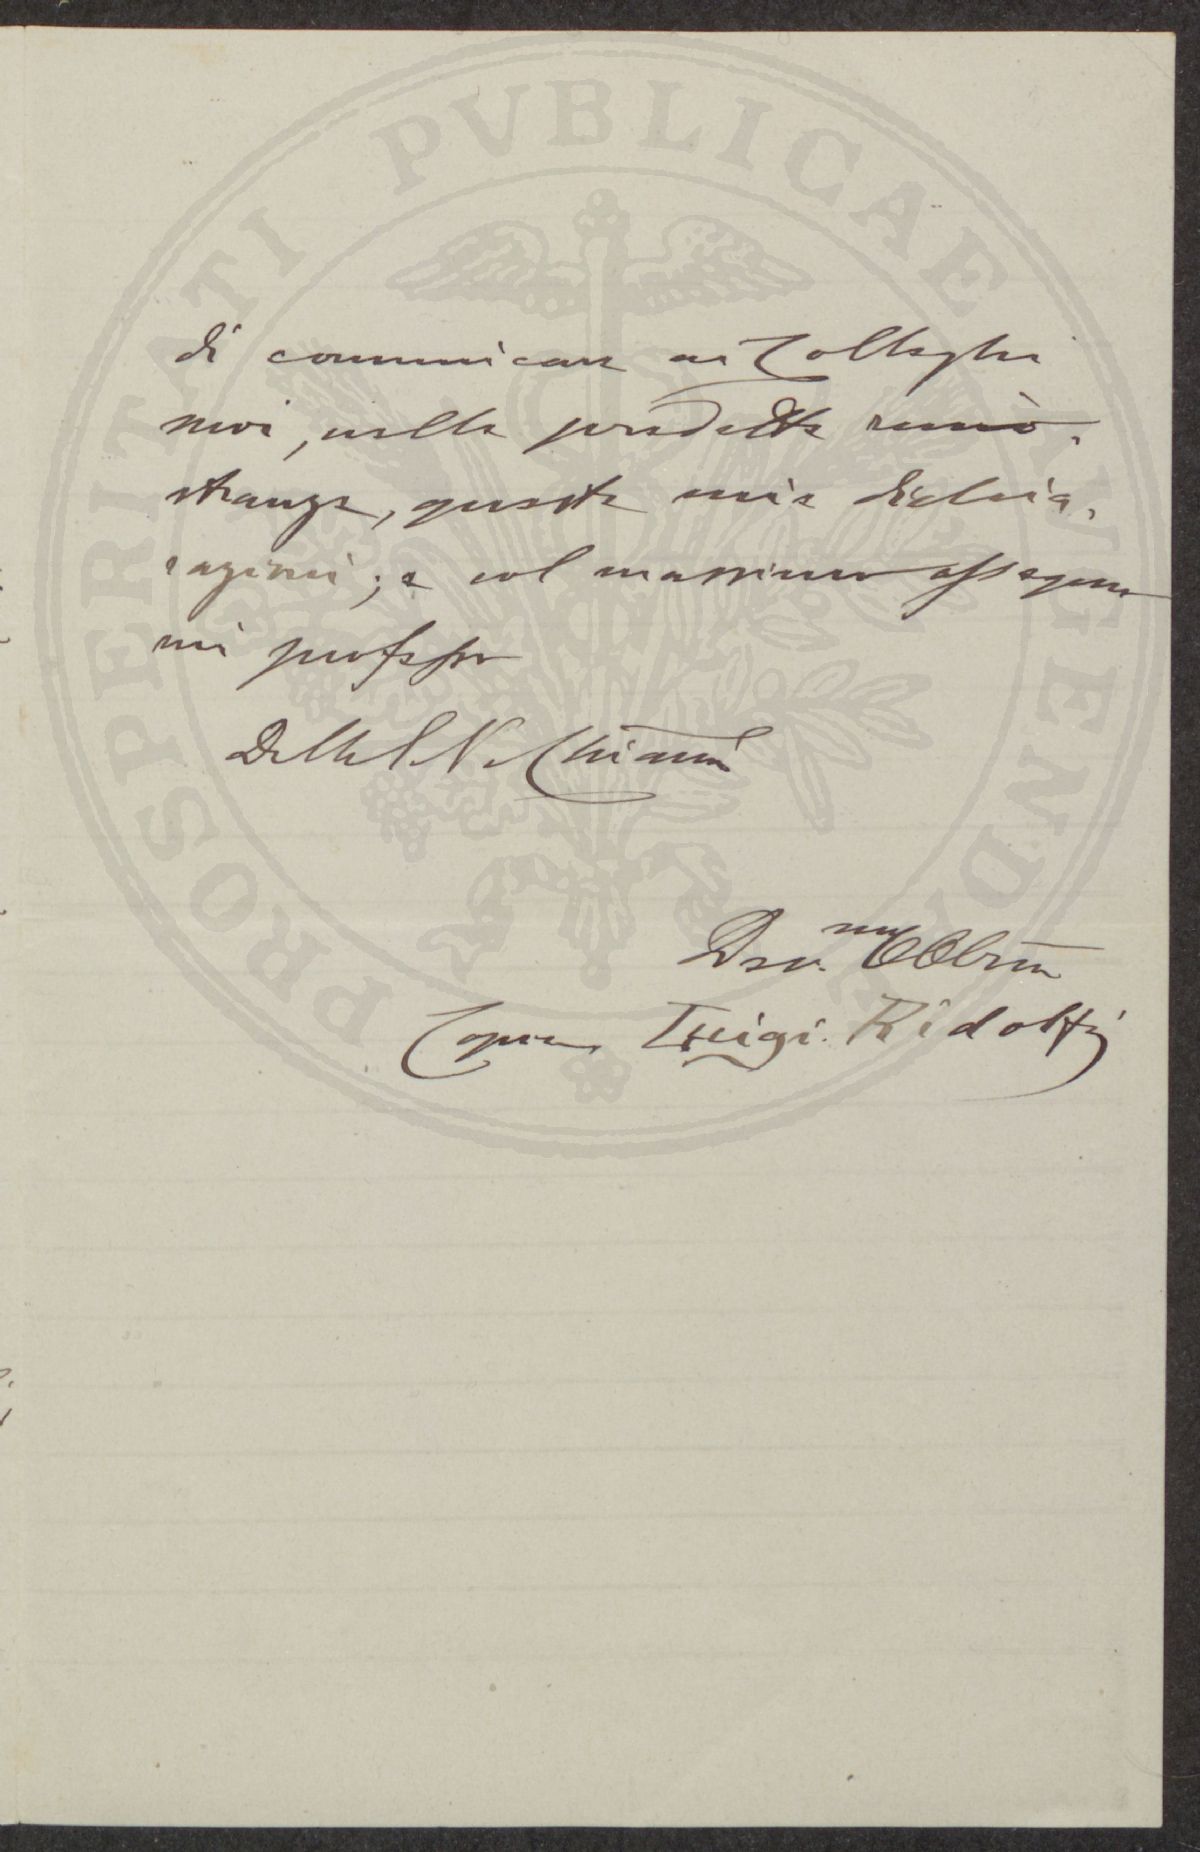 PROSPERITATI PVBLICAE AVGENDAE
di communicare ai Colleghi
suoi, nella predetta
stanza, queste mie dichia-
razioni; e col massimo ossequio
mi professo
Della S. V. Chiarma
Devmo Obbmo
Luigi Ridolfi